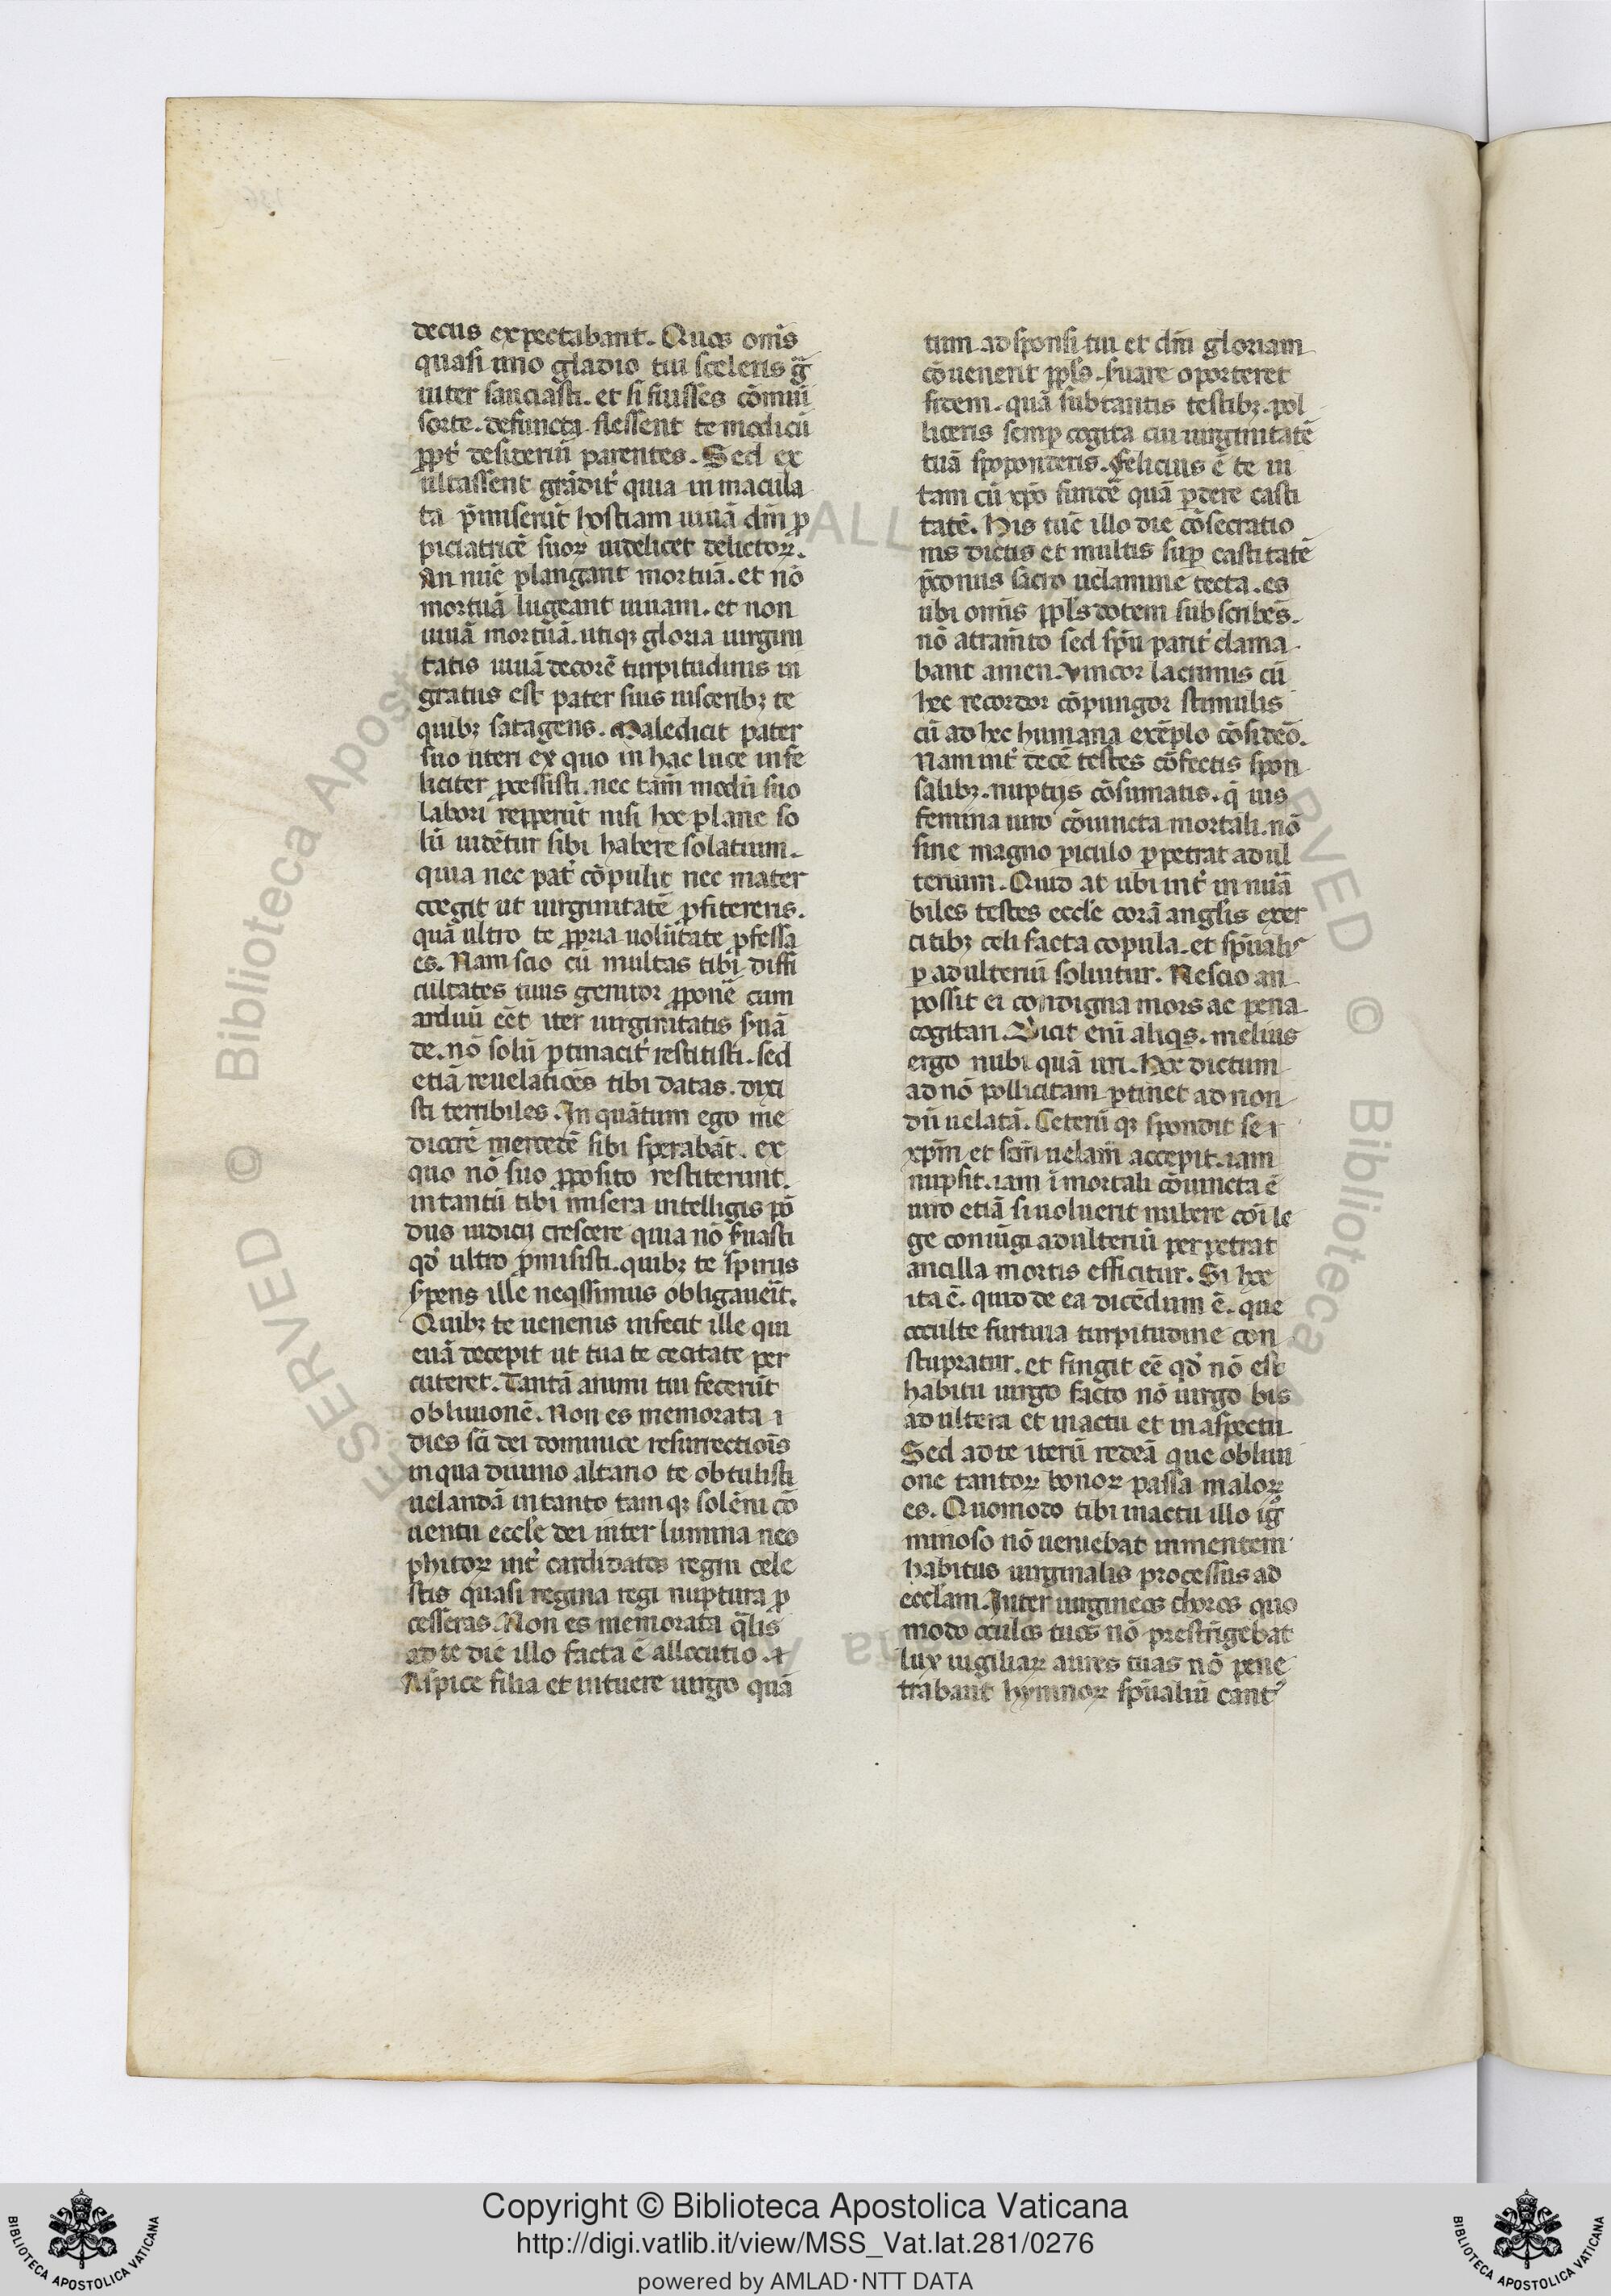 decus expectabant. Quos om̄s
quasi uno gladio tui sceleris g̃
uiter sauciasti. et si fuisses cōmuni
sorte. defuncta flessent te modicū
ꝓpt̉ desiderium parentes. Sed ex
ultassent grādit̉ quia in macula
ta p̄miserūt hostiam uiuā dn̄i ꝓ
piciatricē suoꝝ uidelicet delictoꝝ.
An nūc plangant mortuā. et nō
mortuā lugeant uiuam. et non
uiuā mortuā. utiqꝫ gloria uirgini
tatis uiuā decorē turpitudinis in
gratus est pater suis uisceribꝫ te
quibꝫ satagens. Maledicit pater
suo uteri ex quo in hac luce infe
liciter ꝓcessisti. nec tam̄ modū suo
labori repperiūt nisi hoc plane so
lū uidētur sibi habere solatium.
quia nec pat̉ cōpulit nec mater
coegit ut uirginitatē ꝓfitereris.
quā ultro te ꝓpria uolūtate ꝓfessa
es. Nam scio cū multas tibi diffi
cultates tuus genitor ꝓponēt cum
arduū eēt iter uirginitatis s̉uā
de. nō solū ꝑtinacit̉ restitisti. sed
etiā reuelatiōes tibi datas. dixi
sti terribiles. In quātum ego me
diocrē mercedē sibi sperabāt. ex
quo nō suo ꝓposito restiterunt.
in tantū tibi misera intelligis pō
dus iudicii crescere quia nō s̉uasti
qđ ultro ꝓmisisti. quibꝫ te spiritus
s̉pens ille neq̄ssimus obligaueīt.
Quibꝫ te uenenis infecit ille qui
euā decepit ut tua te cecitate per
cuteret. Tantā animi tui fecerūt
obliuionē. Non es memorata ı
dies sc̄i dei dominice resurrectiōis
in qua diuino altario te obtulisti
uelandā in tanto tamqꝫ solēni cō
uentu eccl̄e dei inter lumina neo
phitoꝝ int̉ candidatos regni cele
stis quasi regina regi nuptura ꝓ
cesseras. Non es memorata q̄lis
ad te die illo facta ē allocutio. ⁊
Aspice filia et intuere uirgo quā
tum ad sponsi tui et dn̄i gloriam
cōuenerit ppl̄s. s̉uare oporteret
fidem. quā sub tantis testibꝫ. pol
liceris semꝑ cogita cui uirginitatē
tuā spoponderis. felicius ē te ui
tam cū xp̄o fundē quā ꝑdere casti
tatē. His tūc illo die cōsecratio
nis dictis et multis suꝑ castitatē
p̄conus sacro uelamine tecta. es
ubi omīs ppl̄s dotem subscribēs.
nō atram̄to sed spū parit̉ clama
bant amen. Vincor lacrimis cū
hec recordor cōpungor stimulis
cū ad hec humana exēplo cōsideō.
Nam int̉ decē testes cōfectis spon
salibꝫ. nuptiis cōsumatis. q̄ uis
femina uiro cōiuncta mortali. nō
sine magno ꝑiculo ꝑpetrat adul
terium. Quid at ubi int̉ innūā
biles testes eccl̄e corā angl̄is exer
citibꝫ celi facta copula. et spūalis
ꝑ adulteriū soluitur. Nescio an
possit ei condigna mors ac pena
cogitari. Dicit eni aliq̄s. melius
ergo nubi quā uri. Hoc dictum
ad nō pollicitam ꝑtinet ad non
dū uelatā. Ceterū qꝫ spondit se ı
xp̄m et scm̄ uelam̄ accepit. iam
nupsit. iam īmortali cōiuncta ē
uiro etiā si uoluerit nubere cōi le
ge coniūgi adulteriū perpetrat
ancilla mortis efficitur. Si hoc
ita ē. quid de ea dicēdum ē. que
occulte furtiua turpitudine con
stupratur. et fingit eē qđ nō est
habitu uirgo facto nō uirgo bis
adultera et in actu et in aspectu
Sed ad te iterū redeā que obliui
one tantoꝝ bonoꝝ passa maloꝝ
es. Quomodo tibi in actu illo ig̊
minioso nō ueniebat in mentem
habitus uirginalis processus ad
eccl̄am. Inter uirgineos choros quo
modo oculos tuos nō prestrīgebat
lux uigiliaꝝ aures tuas nō pene
trabant hymnoꝝ spūaliū cant̉
Copyright © Biblioteca Apostolica Vaticana
http://digi.vatlib.it/view/MSS_Vat.lat.281/0276
powered by AMLAD·NTT DATA